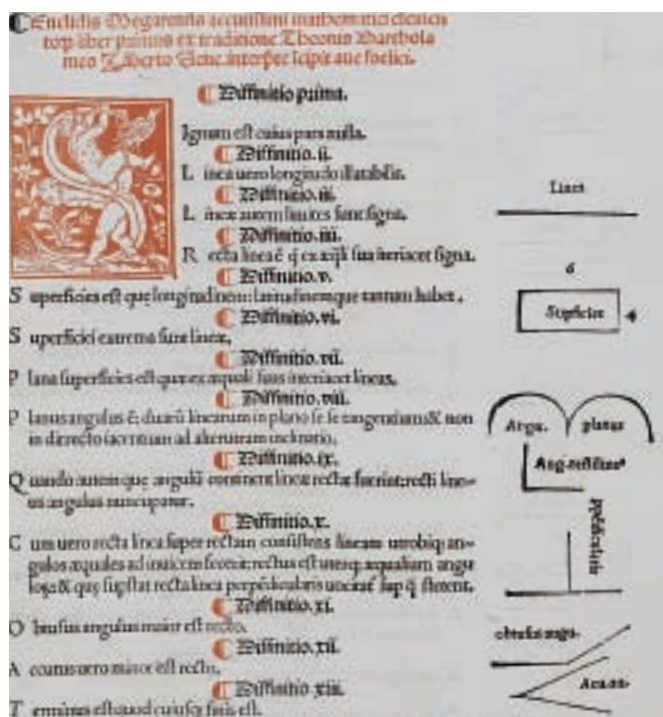 Euclidis Megarensis acutissimi mathematici elementorum
liber primus ex traditione Theonis Bartholameo
Zamberto Veneto interprete incipit
Diffinitio prima.
Signum est cuius pars nulla.
Diffinitio.ii.
Linea uero longitudo illatabilis.
Diffinitio.iii.
Lineæ autem limites sunt signa.
Diffinitio.iiii.
Recta linea ē q̄ ex æq̄li sua interiacet signa.
Diffinitio.v.
Superficies est quæ longitudinem latitudinemque tantum habet.
Diffinitio.vi.
Superficiei extrema sunt lineæ.
Diffinitio.vii.
Plana superficies est quæ ex æquali suas interiacet lineas.
Diffinitio.viii.
Planus angulus ē: duarū linearum in plano se se tangentium & non
in directo iacentium ad alterutram inclinatio.
Diffinitio.ix.
Quando autem que angulū continent lineæ rectæ fuerint: recti line-
us angulus nuncupatur.
Diffinitio.x.
Cum uero recta linea super rectam consistens lineam utrobiq; an-
gulos æquales ad inuicem fecerit: rectus est uterq; æqualium angu
& quæ recta linea perpēdicularis
Diffinitio.xi.
Obtusus angulus maior est recto.
Diffinitio.xii.
Acutus uero minor est recto.
Diffinitio.xiii.
Terminus est quod cuiusq; finis est.
Linea
6
Supficies
4
Angu. planus
Ang.
ppēdicularis
obtusus angu.
Acu.an.